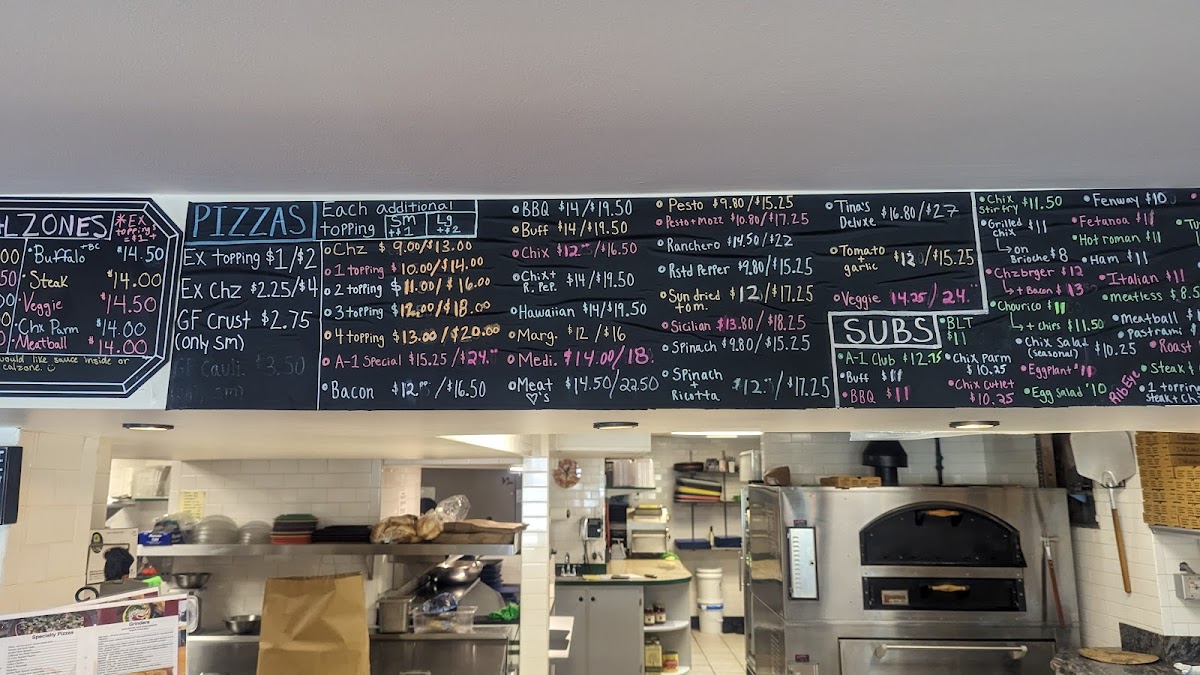 LZONES
*Ex topping!
Buffalo +BC $14.50
Steak $14.00
Veggie $14.50
Chx Parm $14.00
Meatball $14.00
would like sauce inside or
calzone.
PIZZAS
Ex topping $1/$2
Ex Chz $2.25/$4
GF Crust $2.75
(only sm)
GF Cauli. $3.50
Each additional
topping
Sm +$1
Lg +$2
Chz $9.00/$13.00
1 topping $10.00/$14.00
2 topping $11.00/$16.00
3 topping $12.00/$18.00
4 topping $13.00/$20.00
A-1 Special $15.25/$24.
Bacon $12/$16.50
BBQ $14/$19.50
Buff $14/$19.50
Chix $12/$16.50
Chix+
R. Pep. $14/$19.50
Hawaiian $14/$19.50
Marg. $12/$16
Medi. $14.00/18
Meat
♡'s $14.50/22.50
Pesto $9.80/$15.25
Pesto+Mozz $10.80/$17.25
Ranchero $14.50/$22
Rstd Pepper $9.80/$15.25
Sun dried
tom. $12/$17.25
Sicilian $13.80/$18.25
Spinach $9.80/$15.25
Spinach
+
Ricotta $12./$17.25
Tina's
Deluxe $16.80/$27
Tomato
+
garlic $12/$15.25
Veggie 14.25/24.
SUBS
A-1 Club $12.75
Buff $11
BBQ $11
BLT
$11
Chix Parm
$10.25
Chix Cutlet
$10.25
Chix
Stirfry $11.50
Grilled
Chix $11
↳ on
Brioche $8
Chzbrger $12
↳ + Bacon $13
Chourico $11
↳ + chips $11.50
Chix Salad
(seasonal) $10.25
Eggplant $11
Egg Salad $10
Fenway $10
Fetanoa $11
Hot roman $11
Ham $11
Italian $11
meatless $8.5
Meatball $1
Pastrami
Roast
Steak
1 topping
Steak+Ch
RibEye
Specialty Pizzas
Grinders